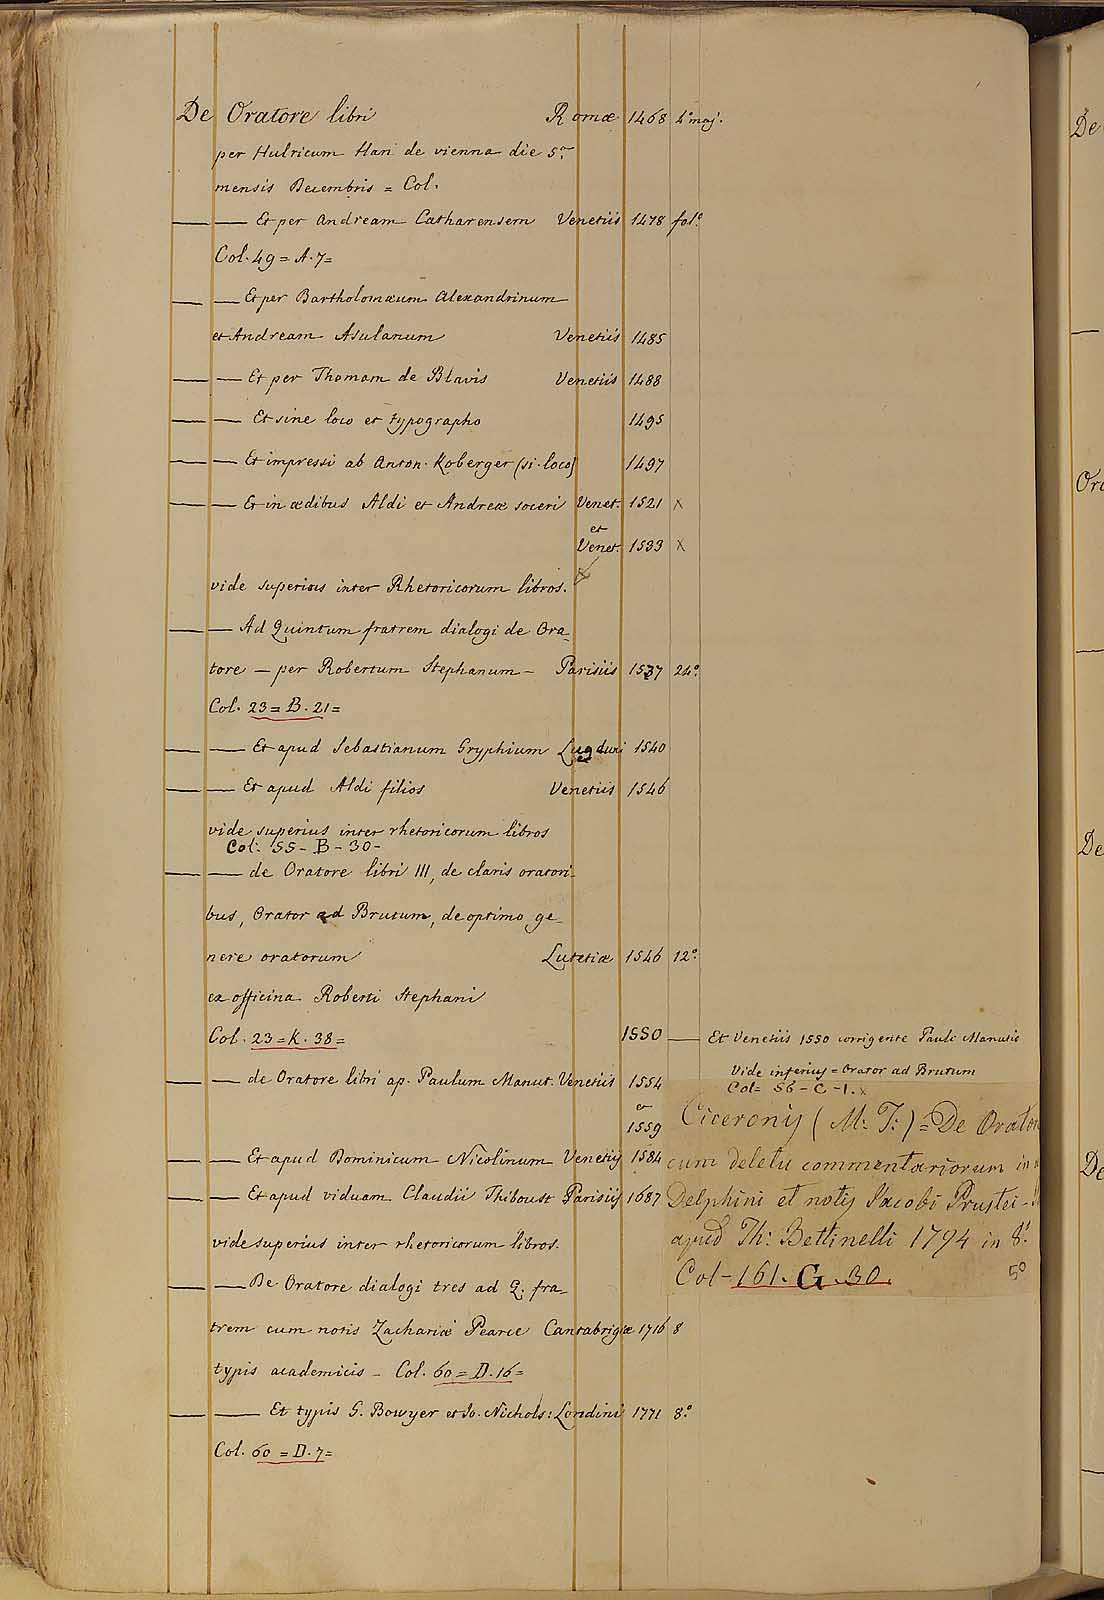 De Oratore libri Romæ 1468 4.º maj.
per Hulricum Han de vienna die 5.ª
mensis Decembris = Col.
— — Et per Andream Catharensem Venetiis 1478 fol.º
Col. 49 = A. 7 =
— — Et per Bartholomæum Alexandrinum
et Andream Asulanum Venetiis 1485
— — Et per Thomam de Blavis Venetiis 1488
— — Et sine loco et typographo 1495
— — Et impressi ab Anton. Koberger (si. loco) 1497
— — Et in ædibus Aldi et Andreæ soceri Venet. 1521 X
et
Venet. 1533 X
vide superius inter Rhetoricorum libros.
— — Ad Quintum fratrem dialogi de Ora_
tore — per Robertum Stephanum — Parisiis 1537 24.º
Col. 23 = B. 21 =
— — Et apud Sebastianum Gryphium Lugduni 1540
— — Et apud Aldi filios Venetiis 1546
vide superius inter rhetoricorum libros
Col: 55 - B - 30 -
— — de Oratore libri III, de claris oratori_
bus, Orator ad Brutum, de optimo ge_
nere oratorum Lutetiæ 1546 12.º
ex officina Roberti Stephani
Col. 23 = K. 38 = 1550 — Et Venetiis 1550 corrigente Paulo Manutio
Vide inferius = Orator ad Brutum
Col = 56 - C - 1. x
— — de Oratore libri ap. Paulum Manut. Venetiis 1554
et
1559
— — Et apud Dominicum Nicolinum Venetiis 1584
— — Et apud viduam Claudii Thiboust Parisiis 1687
vide superius inter rhetoricorum libros.
— — De Oratore dialogi tres ad Q. fra_
trem cum notis Zachariæ Pearce Cantabrigiæ 1716 8
typis academicis - Col. 60 = D. 16 =
— — Et typis G. Bowyer et Jo. Nichols: Londini 1771 8.º
Col. 60 = D. 7 =
Ciceronis (M: T:) = De Orator
cum deletu commentariorum in
Delphini et notis Jacobi Prustei -
apud Th: Bettinelli 1794 in 8.º
Col - 161. G. 30. 5º
De
Ora
De
De